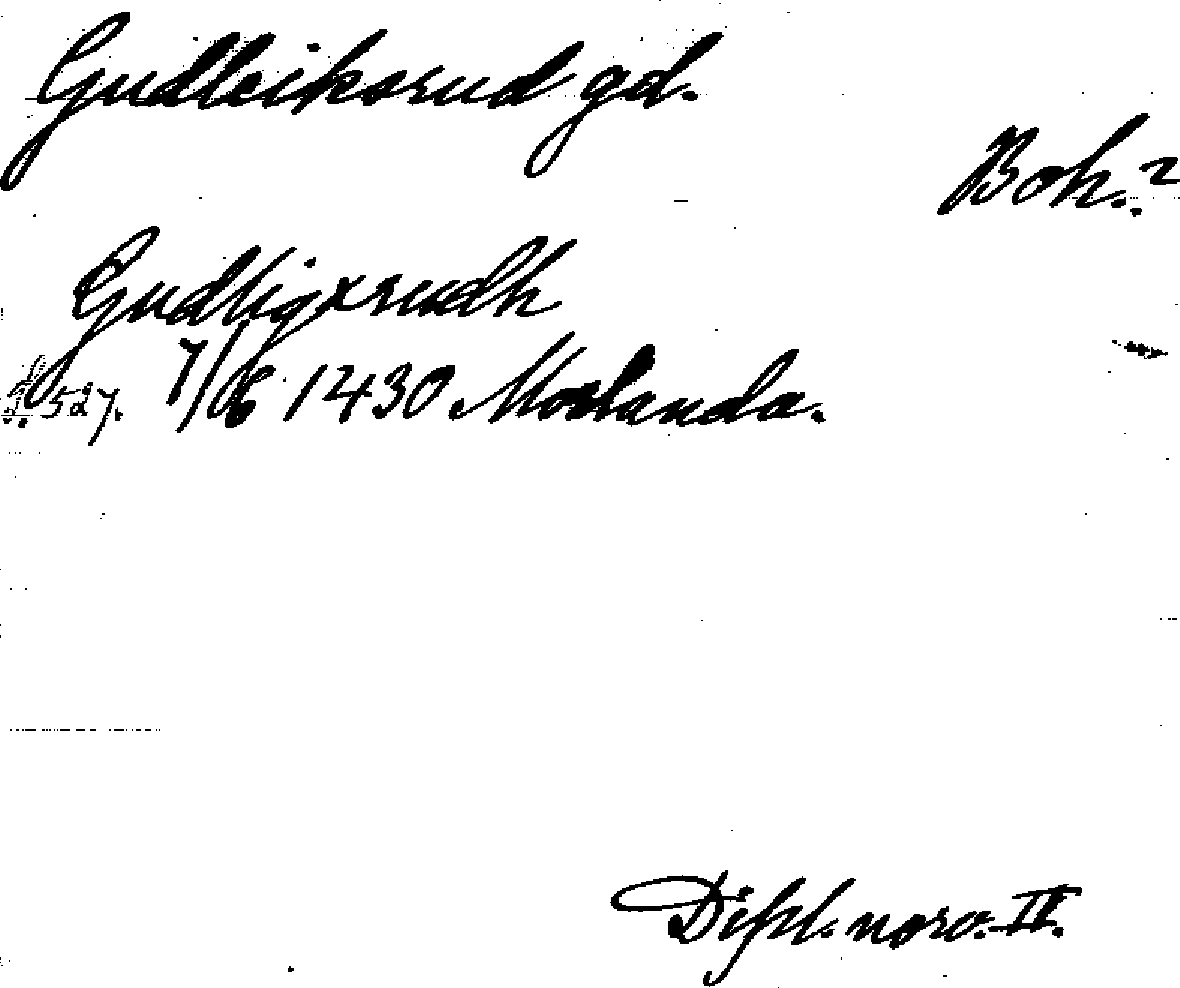 Gudleiksrud gd.
Boh.?
Gudligxrudh
S. 527. 7/6 1430 Morlanda.
Dipl. norv. II.